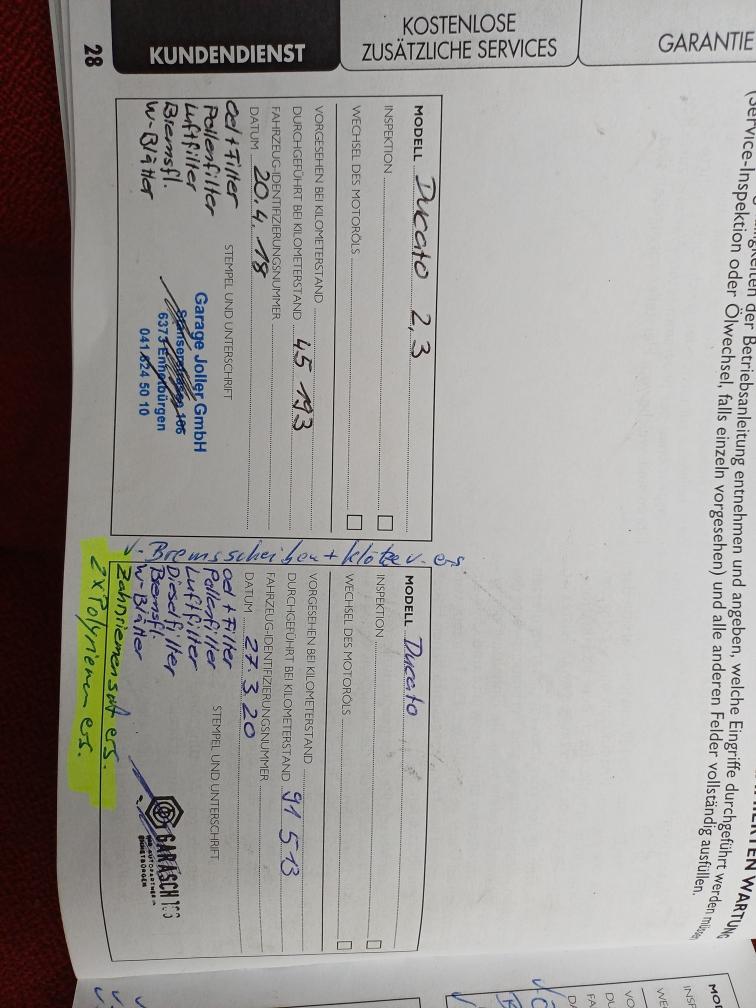 28
KUNDENDIENST
KOSTENLOSE
ZUSÄTZLICHE SERVICES
GARANTIE
der Betriebsanleitung entnehmen und angeben, welche Eingriffe durchgeführt werden
(Service-Inspektion oder Ölwechsel, falls einzeln vorgesehen) und alle anderen Felder vollständig ausfüllen.
MODELL Ducato 2,3
INSPEKTION
WECHSEL DES MOTORÖLS
VORGESEHEN BEI KILOMETERSTAND
DURCHGEFÜHRT BEI KILOMETERSTAND 45 193
FAHRZEUG-IDENTIFIZIERUNGSNUMMER
DATUM 20.4.18
STEMPEL UND UNTERSCHRIFT
oel + Filter
Pollenfilter
Luftfilter
Bremsfl.
W-Blätter
Garage Joller GmbH
6373 Ennetbürgen
041 624 50 10
v. Bremsscheiben + Klötze v. ers.
MODELL Ducato
INSPEKTION
WECHSEL DES MOTORÖLS
VORGESEHEN BEI KILOMETERSTAND
DURCHGEFÜHRT BEI KILOMETERSTAND 91 513
FAHRZEUG-IDENTIFIZIERUNGSNUMMER
DATUM 27.3 20
STEMPEL UND UNTERSCHRIFT
oel + Filter
Pollenfilter
Luftfilter
Dieselfilter
Bremsfl.
W-Blätter
Zahnriemensatz ers.
2 x Polyriemen ers.
GARASCH